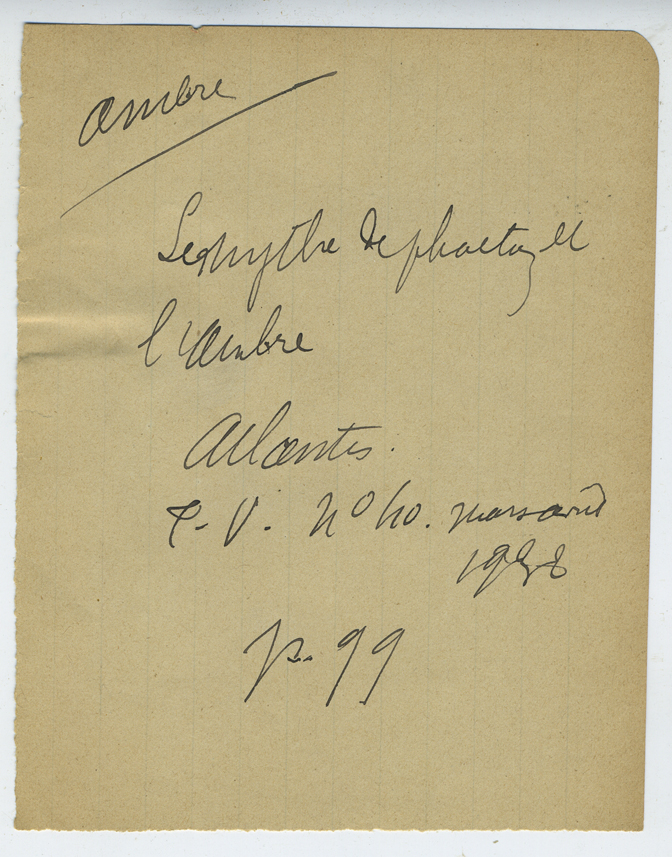 ambre
Le mythe de phaeton et
l'Ambre
Atlantis.
T. V. n° 40. mars avril
p. 99